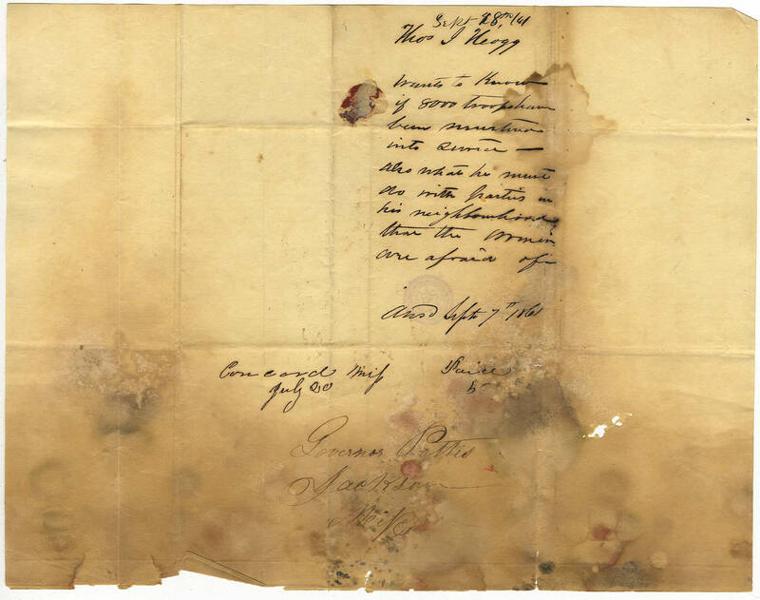 Sept 28th/61
Thos J Keogg
wants to Know
if 8000 troops have
been mustered
into service —
also what he must
do with parties in
his neighbourhood
that the women
are afraid of
Ansd Sept 7th 1861
Concord Miss Paid
July 30 5
Governor Pettus
Jackson
Miss